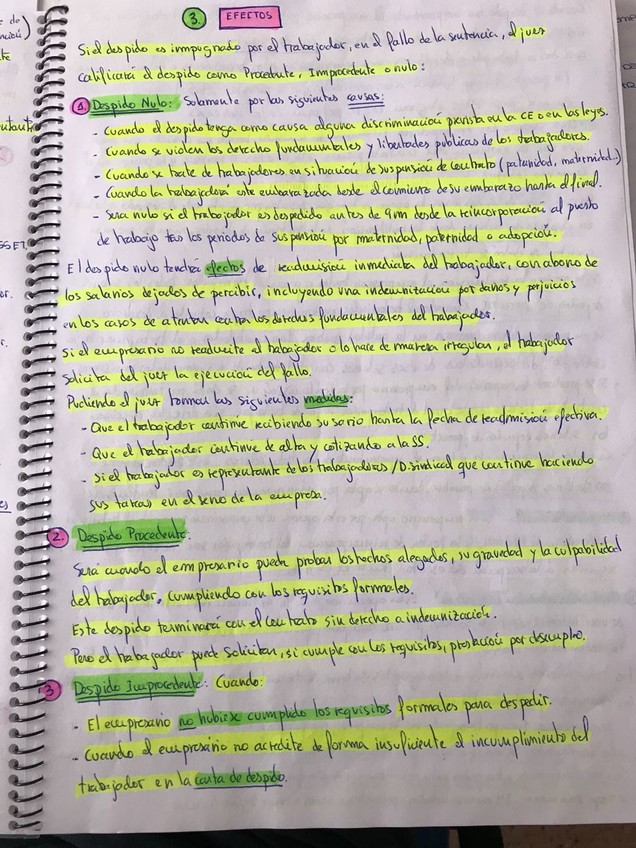 3. EFECTOS
Si el despido es impugnado por el trabajador, en el fallo de la sentencia, el juez
calificará el despido como Procedente, Improcedente o nulo:
1. Despido Nulo: Solamente por las siguientes causas:
- Cuando el despido tenga como causa alguna discriminación prevista en la CE o en las leyes.
- Cuando se violen los derecho fundamentales y libertades públicas de los trabajadores.
- Cuando se trate de trabajadores en situación de suspensión de contrato (paternidad, maternidad...)
- Cuando la trabajadora esté embarazada desde el comienzo de su embarazo hasta el final.
- Será nulo si el trabajador es despedido antes de 9m desde la reincorporación al puesto
de trabajo tras los periodos de suspensión por maternidad, paternidad o adopción.
El despido nulo tendrá efectos de readmisión inmediata del trabajador, con abono de
los salarios dejados de percibir, incluyendo una indemnización por daños y perjuicios
en los casos de atentar contra los derechos fundamentales del trabajador.
Si el empresario no readmite al trabajador o lo hace de manera irregular, el trabajador
solicita del juez la ejecución del fallo.
Pudiendo el juez tomar las siguientes medidas:
- Que el trabajador continue recibiendo su sario hasta la fecha de readmisión efectiva.
- Que el trabajador continue de alta y cotizando a la SS.
- Si el trabajador es representante de los trabajadores / D. sindical que continue haciendo
sus tareas en el seno de la empresa.
2. Despido Procedente:
Será cuando el empresario pueda probar los hechos alegados, su gravedad y la culpabilidad
del trabajador, cumpliendo con los requisitos formales.
Este despido terminará con el contrato sin derecho a indemnización.
Pero el trabajador puede solicitar, si cumple con los requisitos, prestación por desempleo.
3 Despido Improcedente: Cuando:
- El empresario no hubiese cumplido los requisitos formales para despedir.
- Cuando el empresario no acredite de forma insuficiente el incumplimiento del
trabajador en la carta de despido.